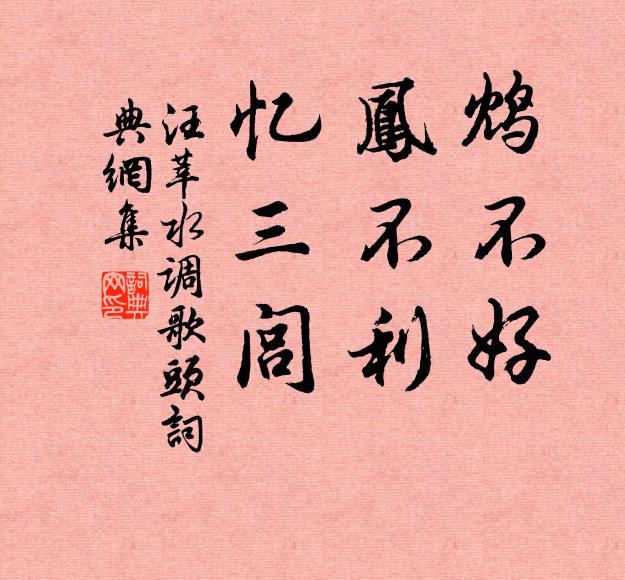 鸩不好
鳳不利
忆三闾
汪莘水调歌頭詞
典網集
詞典
网印